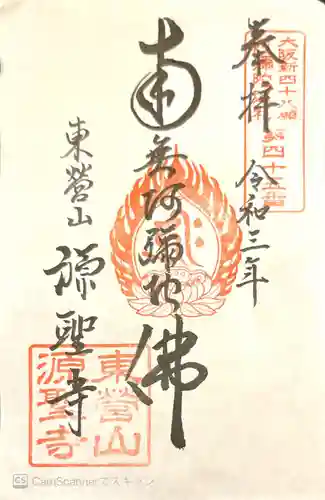 大阪新四十八願
阿弥陀巡礼 第四十五番
奉拝 令和三年
南無阿弥陀佛
東營山
源聖寺
東營山
源聖寺
CS CamScannerでスキャン